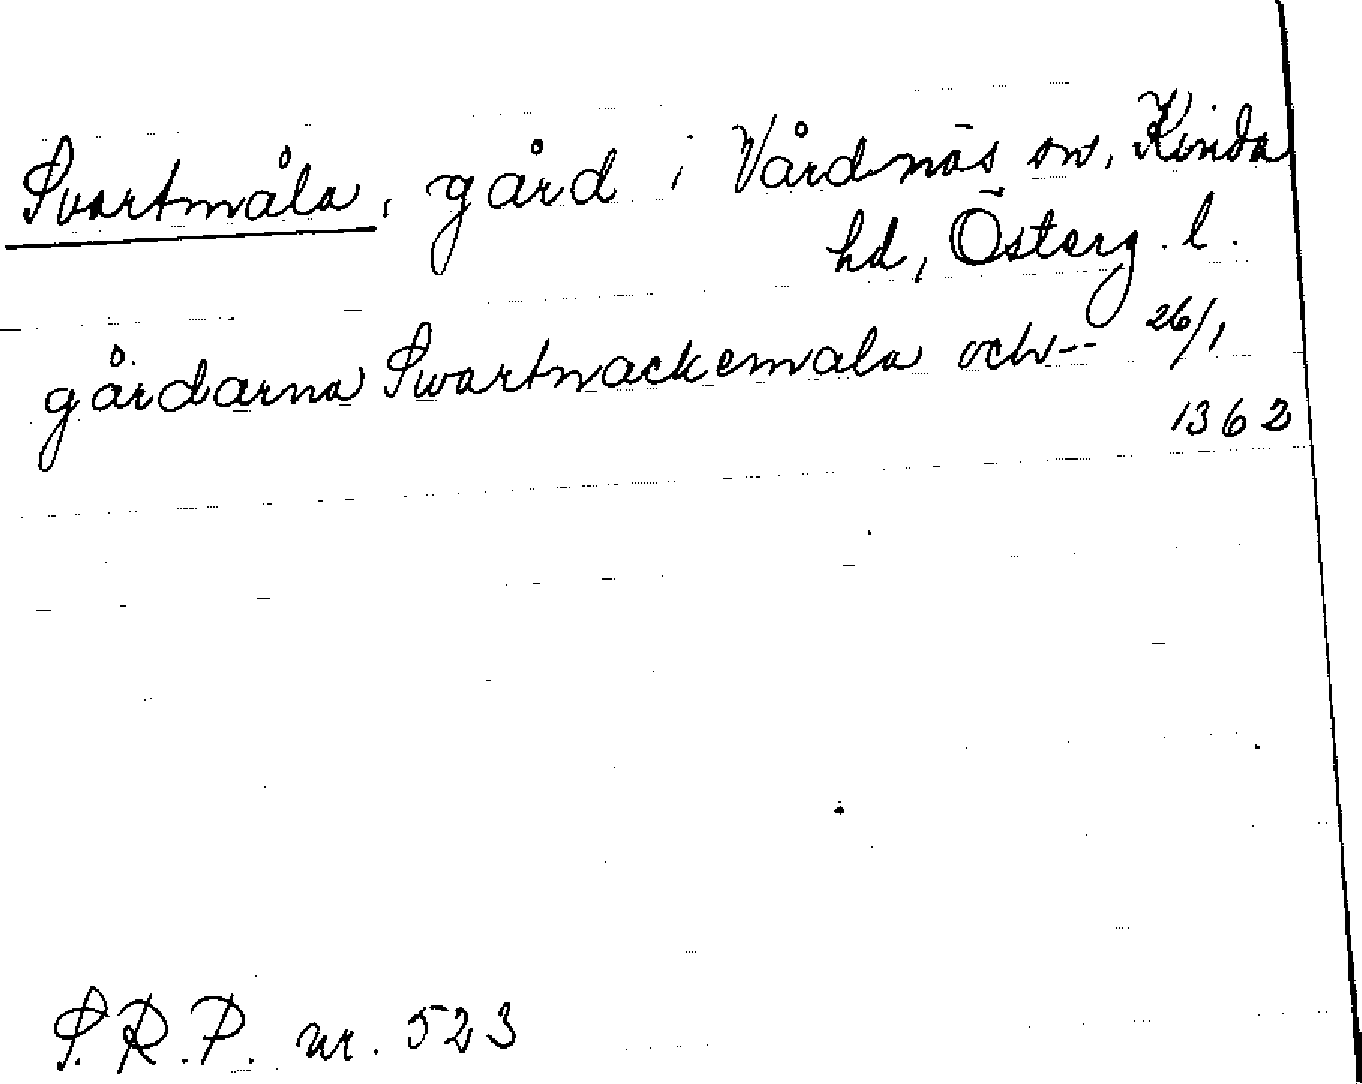 Svartmåla, gård i Vårdnäs sn, Kinda
hd, Österg. l.
gårdarna Swartnackemala och -- 26/1
1362
S.R.P. nr. 523